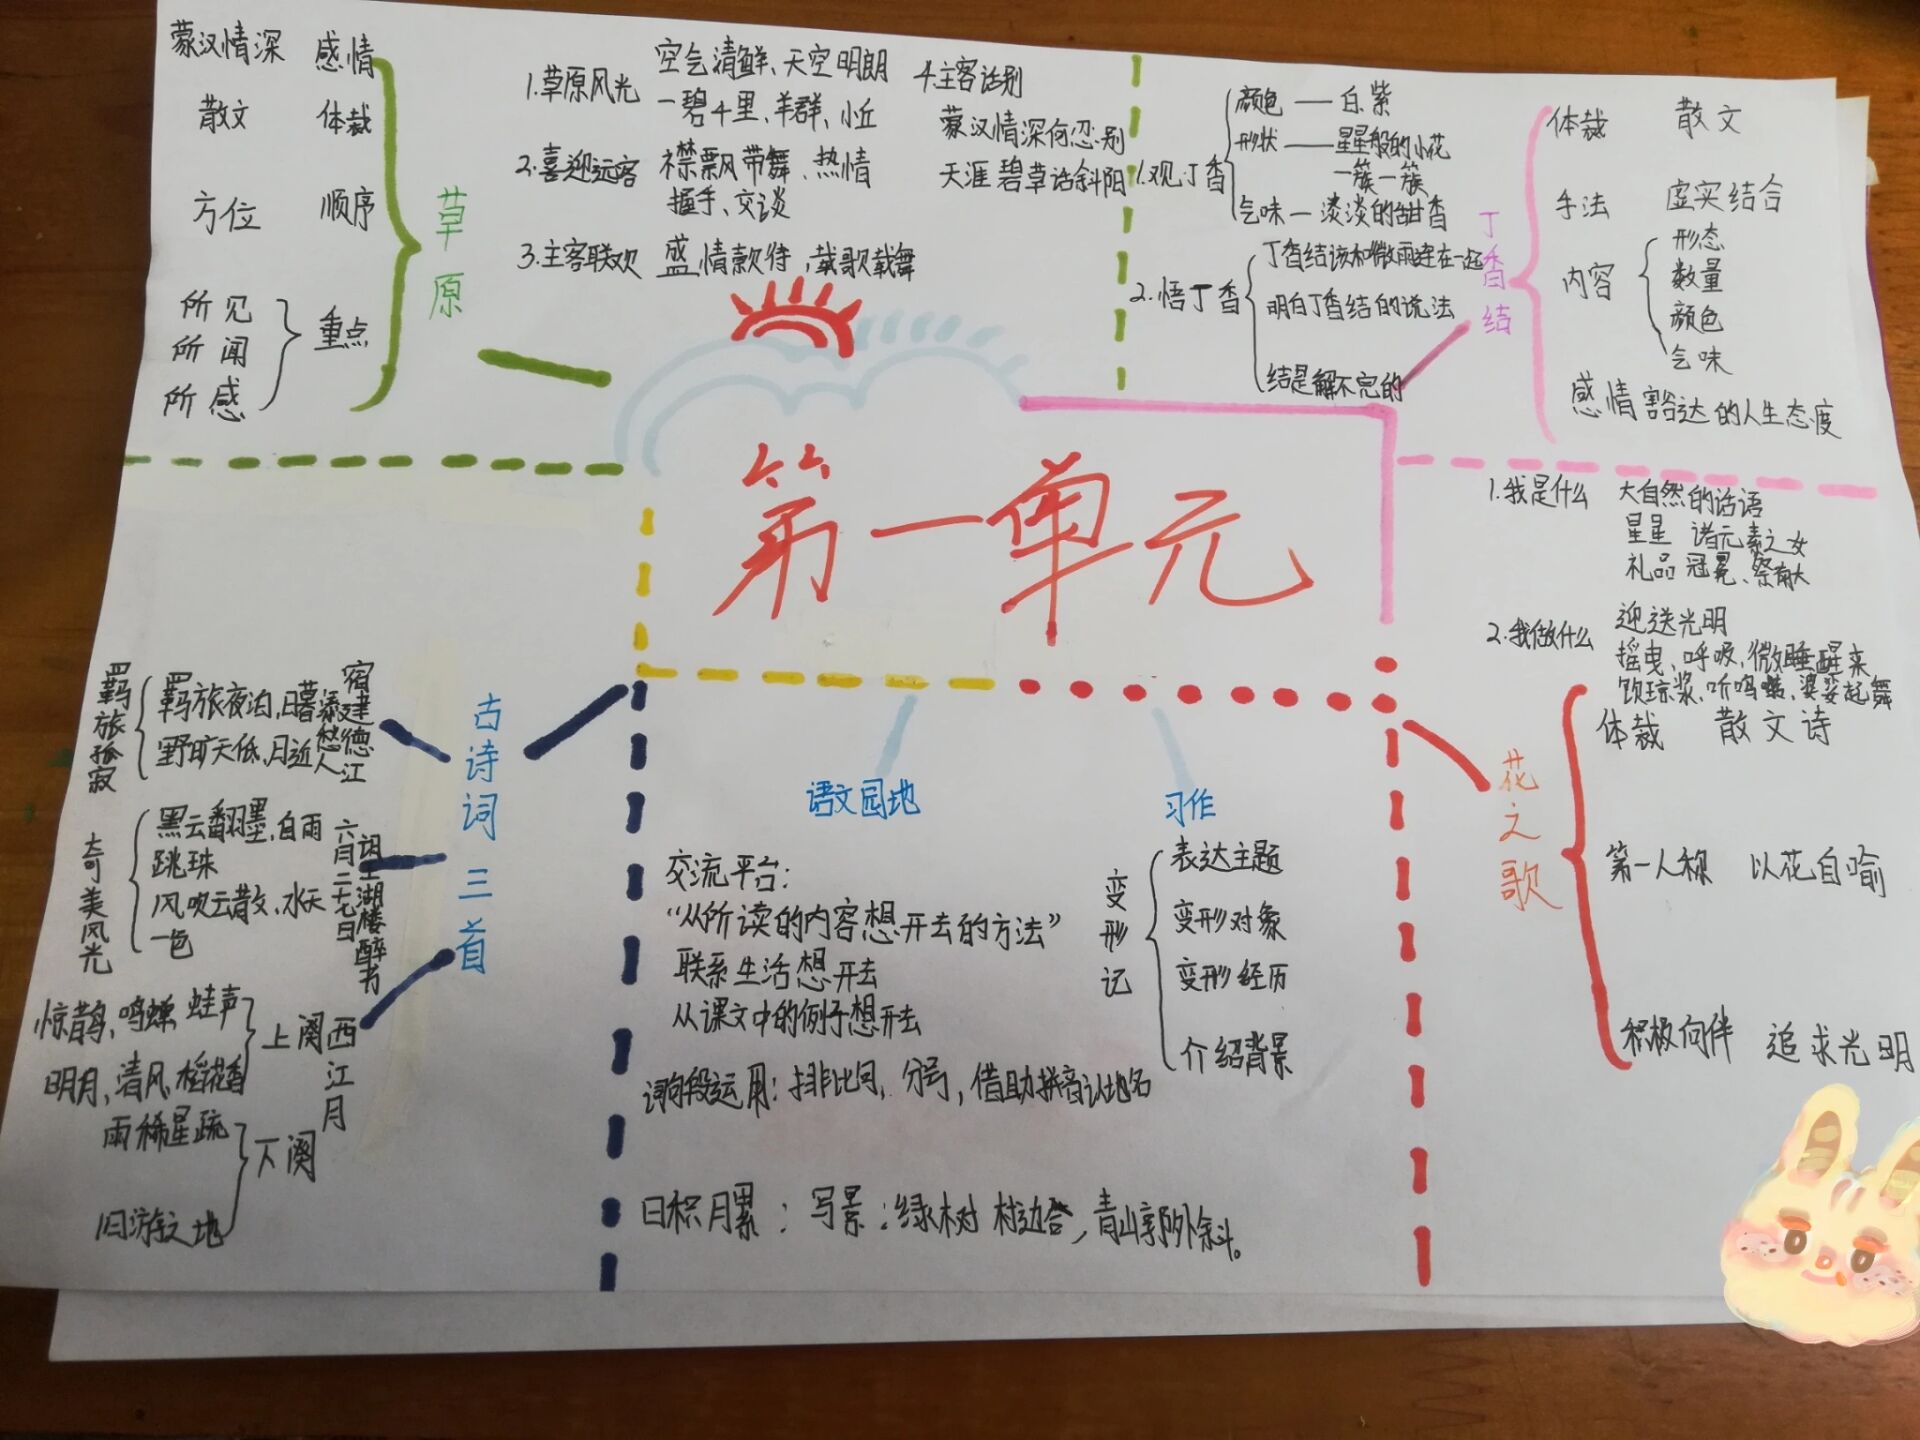 第一单元
草原
蒙汉情深 感情
散文 体裁
方位 顺序
所见
所闻 重点
所感
1.草原风光 空气清鲜、天空明朗
一碧千里、羊群、小丘
2.喜迎远客 襟飘带舞、热情
握手、交谈
3.主客联欢 盛情款待,载歌载舞
4.主客话别
蒙汉情深何忍别
天涯碧草话斜阳
丁香结
1.观丁香
颜色——白.紫
形状——星星般的小花
一簇一簇
气味—淡淡的甜香
2.悟丁香
丁香结该和微雨连在一起
明白丁香结的说法
结是解不完的
体裁 散文
手法 虚实结合
内容
形态
数量
颜色
气味
感情 豁达的人生态度
花之歌
1.我是什么 大自然的话语
星星 诸元素之女
礼品 冠冕、祭献
2.我做什么 迎送光明
摇曳、呼吸、微睡醒来
饮琼浆、听鸣啭、婆娑起舞
体裁 散文诗
第一人称 以花自喻
积极向伴 追求光明
古诗词三首
宿建德江
羁旅孤寂
羁旅夜泊,日暮添愁
野旷天低,月近人
六月二十七日
望湖楼醉书
奇美风光
黑云翻墨,白雨
跳珠
风吹云散、水天
一色
西江月
上阕
惊鹊、鸣蝉、蛙声
明月,清风,稻花香
下阕
雨稀星疏
旧游之地
语文园地
交流平台:
“从所读的内容想开去的方法”
联系生活想开去
从课文中的例子想开去
词句段运用:排比句,分号,借助拼音认地名
日积月累:写景:绿树村边合,青山郭外斜。
习作
变形记
表达主题
变形对象
变形经历
介绍背景